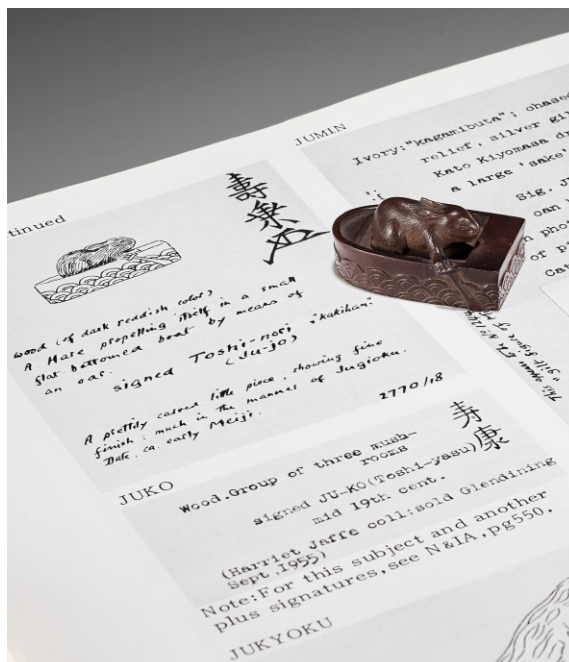 tinued
壽
wood (of dark reddish color)
A Hare propelling itself in a small
flat bottomed boat by means of
an oar.
signed Toshi-nori "kakihan"
(Ju-jo)
A prettily carved little piece, showing fine
finish; much in the manner of Jugioku.
Date. ca. early Meiji.
2770/18
JUKO
寿康
Wood.Group of three mush-
rooms
signed JU-KO(Toshi-yasu)
mid 19th cent.
(Harriet Jaffe coll:sold Glendining
Sept.1955)
Note:For this subject and another
plus signatures,see N&IA,pg550.
JUKYOKU
JUMIN
Ivory:"kagamibuta"; chased
relief, silver gil
Kato Kiyomasa dr
a large 'sake'
Sig. JU
can
phot
of p
Cat